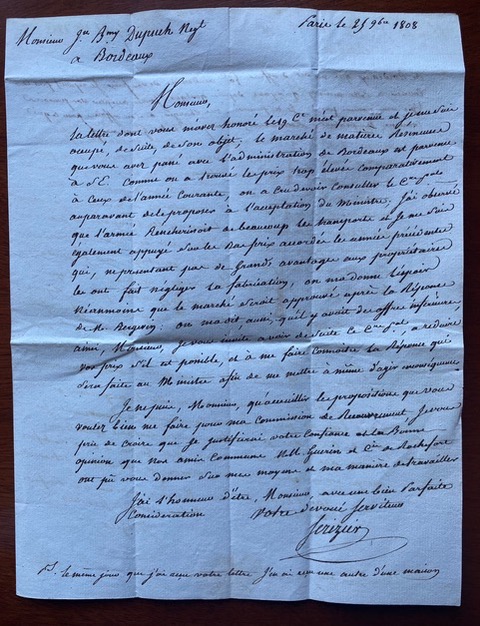 Monsieur Jn Bmy Dupuch Negt
à Bordeaux
Paris le 25 9bre 1808
Monsieur,
La lettre dont vous m'avez honoré le 19 Ct m'est parvenue et je me suis
occupé, de suite de son objet; le marché de matière Résineuse
que vous avez passé avec l'administration de Bordeaux est parvenu
à S.E. Comme on a trouvé le prix trop élevée comparativement
à Ceux de l'année Courante, on a cru devoir consulter le Cre gal
auparavant de le proposer à l'acceptation du Ministre, J'ai observé
que l'armée Rencherissoit de beaucoup les transports et Je me suis
également appuyé sur les Bas prix accordés les années précédentes
qui, ne présentant pas de Grands avantages aux propriétaires
les ont fait négliger la fabrication, on m'a donné l'espoir
Néanmoins que le marché seroit approuvé après la Réponse
de M. Bergevin: on m'a dit aussi, qu'il y avait des offres inférieures
ainsi, Monsieur, je vous invite à voir de suite le Cre gal, à réduire
vos prix s'il est possible, et à me faire connoitre la Réponse qui
Sera faite au Ministre afin de me mettre à même d'agir conséquemment
Je ne puis, Monsieur, qu'accueillir les propositions que vous
voulez bien me faire pour ma Commission de Recouvrement, je vous
prie de croire que Je justifierai votre Confiance et la Bonne
opinion que nos amis Communs MM. Guerin et Cie de Rochefort
ont pû vous donner sur mes moyens et ma manière de travailler
J'ai l'honneur d'être, Monsieur, avec une bien Parfaite
Considération Votre dévoué Serviteur
Serizier
P.S. le même jour que j'ai reçu votre lettre J'en ai reçu une autre d'une maison